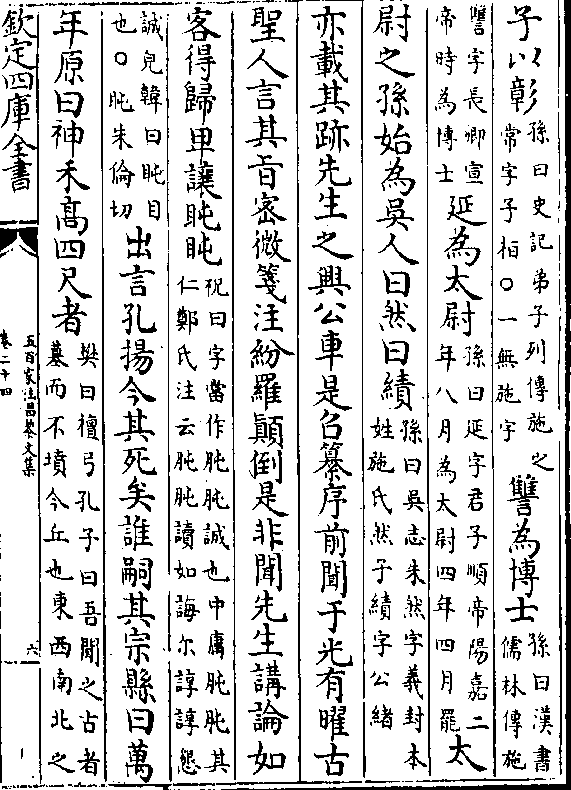 子以彰孫曰史記弟子列傳施之常字子栢○一無施字讐為博士孫曰漢書儒林傳施
讐字長卿宣帝時為博士延為太尉孫曰延字君子順帝陽嘉二年八月為太尉四年四月罷太
尉之孫始為吳人曰然曰績孫曰吳志朱然字義封本姓施氏然子績字公緒
亦載其跡先生之興公車是召纂序前聞于光有曜古
聖人言其旨密微箋注紛羅顛倒是非聞先生講論如
客得歸卑讓肫肫祝曰字當作肫肫誠也中庸肫肫其仁鄭氏注云肫肫讀如誨尔諄諄懇
誠皃韓曰肫目也○肫朱倫切出言孔揚今其死矣誰嗣其宗縣曰萬
年原曰神禾高四尺者樊曰檀弓孔子曰吾聞之古者墓而不墳今丘也東西南北之
欽定四庫全書
五百家注昌黎文集
卷二十四
六